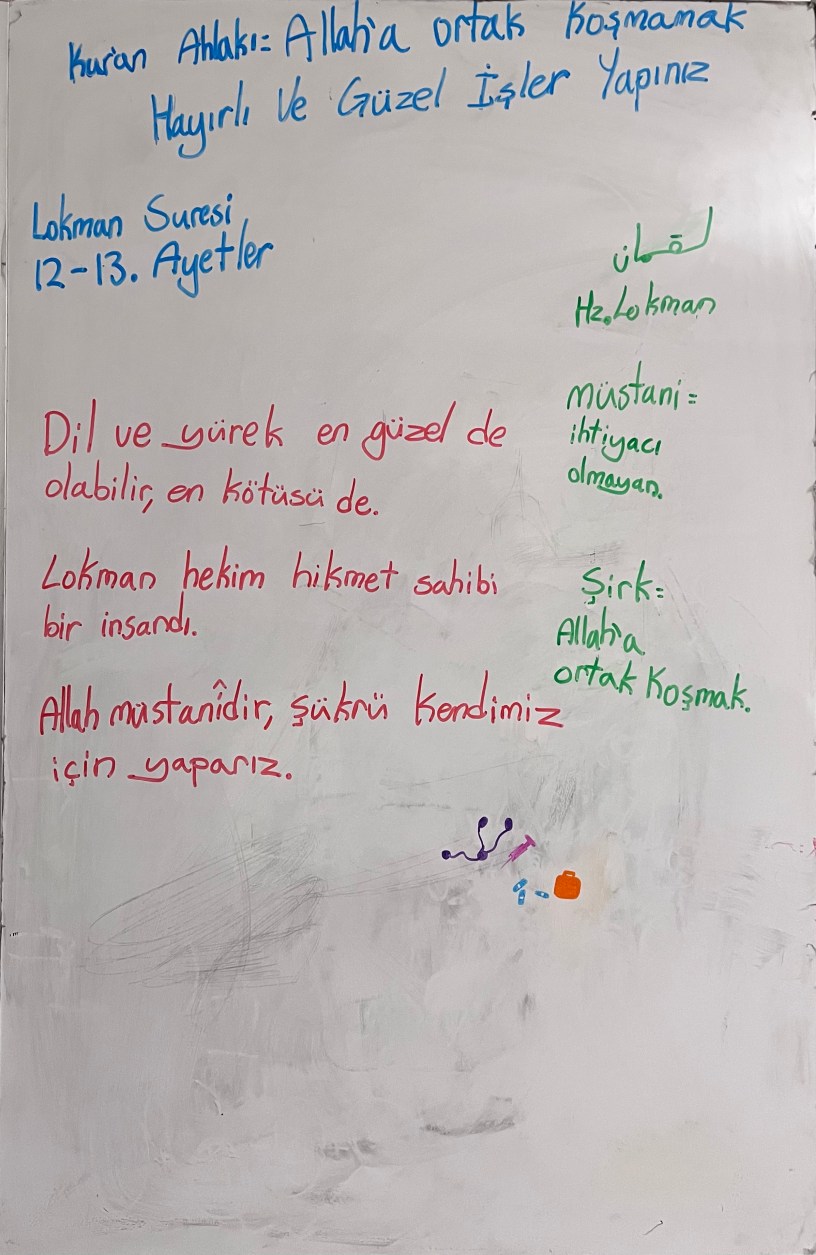 Kur'an Ahlakı= Allah'a ortak koşmamak
Hayırlı Ve Güzel İşler Yapınız
Lokman Suresi
12-13. Ayetler
لقمان
Hz. Lokman
müstani=
ihtiyacı
olmayan.
Dil ve yürek en güzel de
olabilir, en kötüsü de.
Lokman hekim hikmet sahibi
bir insandı.
Şirk=
Allah'a
ortak koşmak.
Allah müstanîdir, şükrü kendimiz
için yaparız.